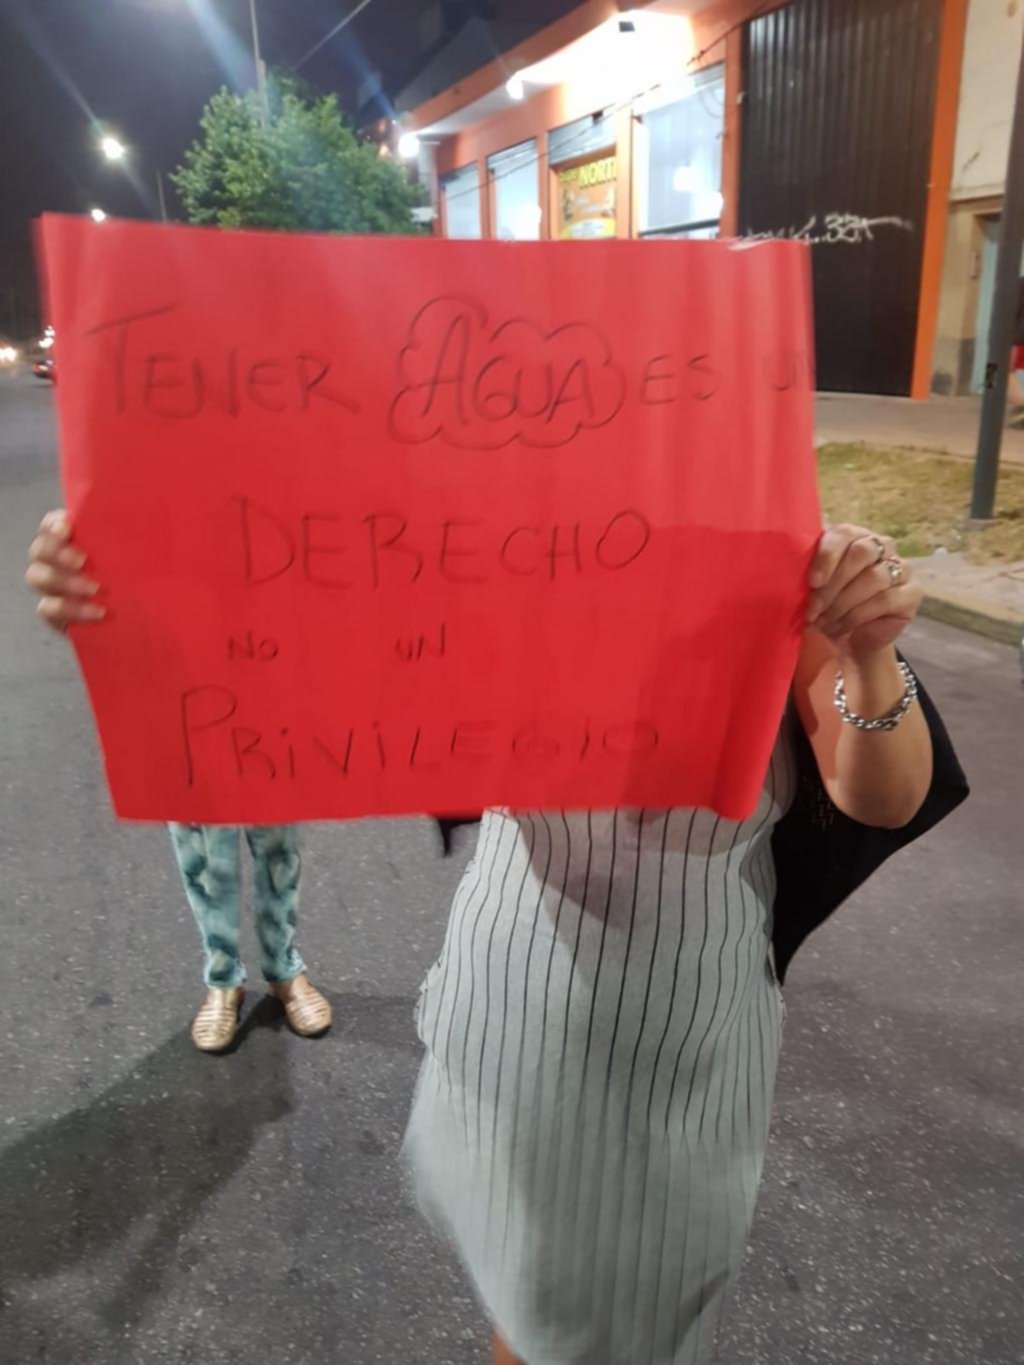 NORT
TENER AGUA ES UN
DERECHO
NO UN
PRIVILEGIO